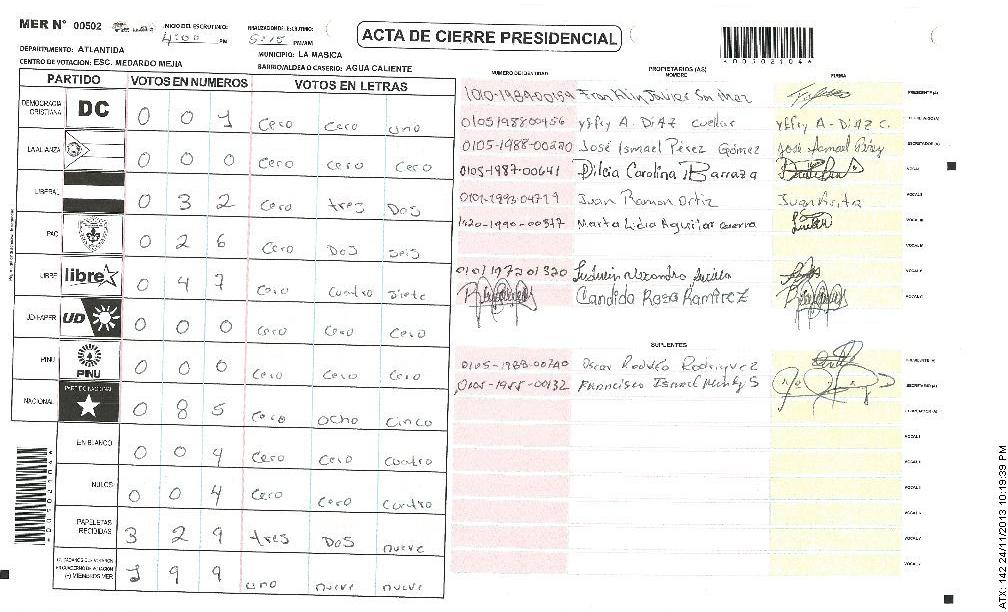 MER N° 00502
INICIO DEL ESCRUTINIO: 4:00 PM
FINALIZACION DEL ESCRUTINIO: 5:15 PM/AM
ACTA DE CIERRE PRESIDENCIAL
DEPARTAMENTO: ATLANTIDA
MUNICIPIO: LA MASICA
CENTRO DE VOTACION: ESC. MEDARDO MEJIA
BARRIO/ALDEA O CASERIO: AGUA CALIENTE
*00502104*
PARTIDO VOTOS EN NUMEROS VOTOS EN LETRAS
DEMOCRACIA CRISTIANA DC 0 0 1 cero cero uno
LA ALIANZA 0 0 0 cero cero cero
LIBERAL 0 3 2 cero tres Dos
PAC 0 2 6 cero Dos seis
LIBRE libre 0 4 7 cero cuatro siete
UD-FAPER UD 0 0 0 cero cero cero
PINU PINU 0 0 0 cero cero cero
NACIONAL PARTIDO NACIONAL 0 8 5 cero ocho cinco
EN BLANCO 0 0 4 cero cero cuatro
NULOS 0 0 4 cero cero cuatro
PAPELETAS RECIBIDAS 3 2 9 tres Dos nueve
(+) MIEMBROS MER 1 9 9 uno nueve nueve
NUMERO DE IDENTIDAD PROPIETARIOS (AS) NOMBRE FIRMA
1010-1989-00159 Franklin Javier Sanchez PRESIDENTE (A)
0105198800456 yffry A. DiAZ cuellar yffry A. DiAZ c.
0105-1988-00220 José Ismael Pérez Gómez José Ismael Pérez SECRETARIO (A)
0105-1987-00641 Dilcia Carolina Barraza VOCAL I
0101-1993-04719 Juan Ramon Ortiz VOCAL II
1420-1990-00317 Marta Lidia Aguilar VOCAL III
VOCAL IV
0101197201320 VOCAL V
Candida Rosa Ramirez
SUPLENTES
0105-1988-00740 Oscar Rodolfo Rodriguez PRESIDENTE (A)
0105-1988-00132 Francisco Ismael SECRETARIO (A)
VOCAL I
VOCAL II
VOCAL III
VOCAL IV
VOCAL V
*00502104*
ATX: 142 24/11/2013 10:19:39 PM